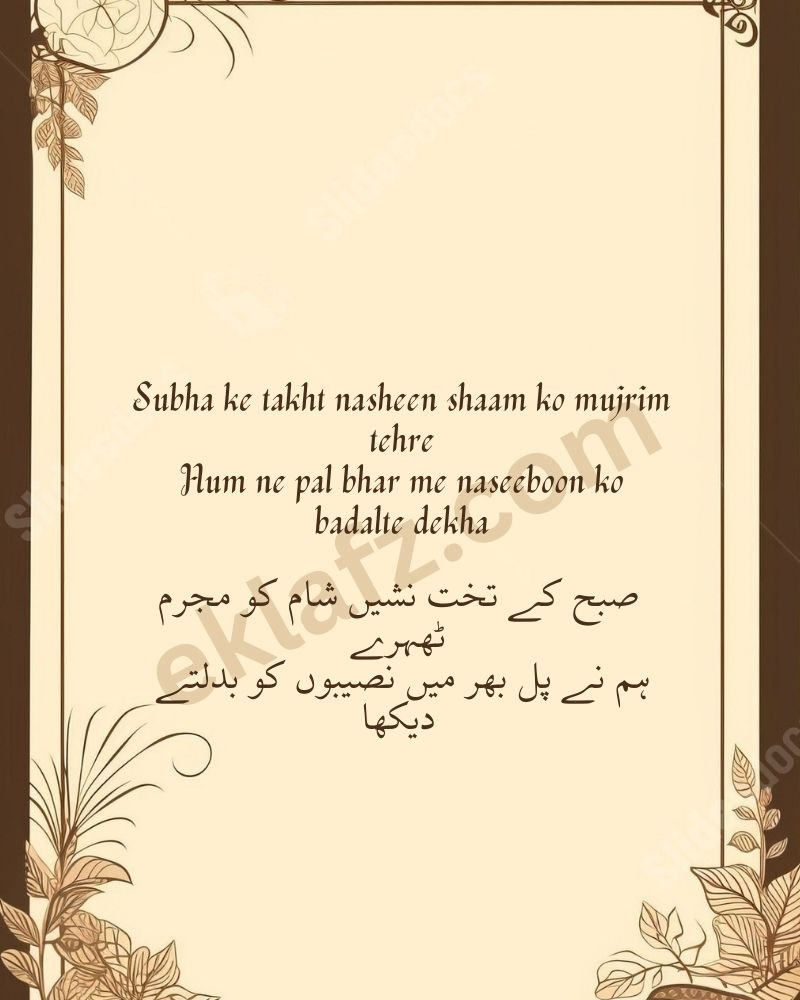 Subha ke takht nasheen shaam ko mujrim
tehre
Hum ne pal bhar me naseeboon ko
badalte dekha
صبح کے تخت نشیں شام کو مجرم
ٹھہرے
ہم نے پل بھر میں نصیبوں کو بدلتے
دیکھا
eklafz.com
Slidesdocs
Slidesdocs
Slidesdocs